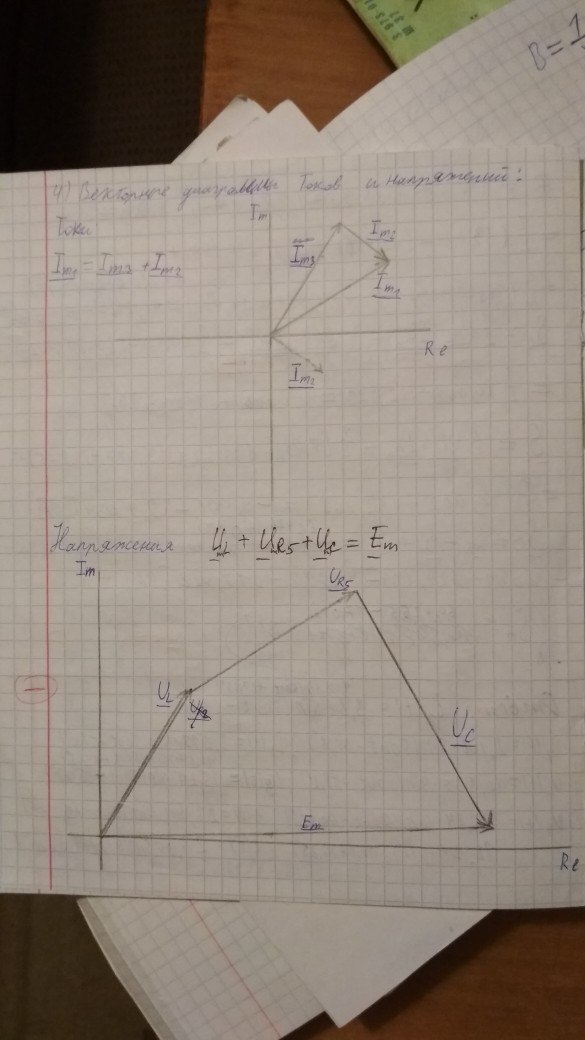 B=1
4) Векторные диаграммы токов и напряжений:
Im
Токи
Im1 = Im3 + Im2
Im2
Im3
Im1
Re
Im2
Напряжения UL + UR5 + UC = Em
Im
UR5
UL
UC
Em
Re